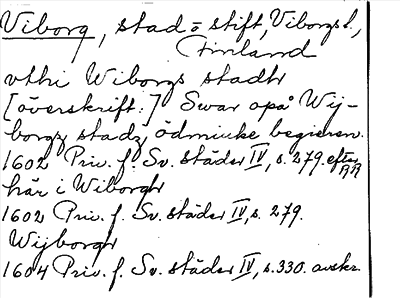 Viborg, stad o stift, Viborgs l.,
Finland
vthi Wiborgs stadh
[överskrift:] Swar opå Wij-
borgz stadz ödmiuke begieren.
1602 Priv. f. Sv. städer IV, s. 279. efter RR
här i Wiborgh
1602 Priv. f. Sv. städer IV, s. 279.
Wijborgh
1604 Priv. f. Sv. städer IV, s. 330. avskr.